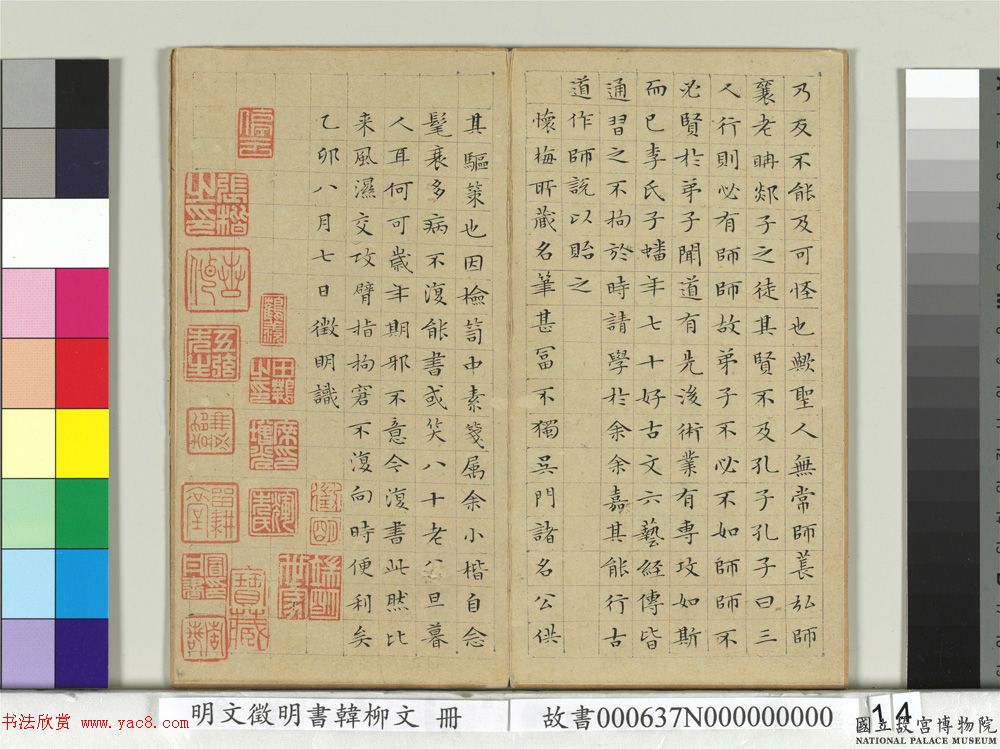 乃反不能及可怪也歟聖人無常師萇弘師
襄老聃郯子之徒其賢不及孔子孔子曰三
人行則必有師師故弟子不必不如師師不
必賢於弟子聞道有先後術業有專攻如斯
而已李氏子蟠年七十好古文六藝經傳皆
通習之不拘於時請學於余余嘉其能行古
道作師說以貽之
懷梅所藏名筆甚冨不獨吳門諸名公供
其驅策也因檢笥中素箋属余小楷自念
髦衰多病不復能書或笑八十老公旦暮
人耳何可歲年期邪不意今復書此然比
来風濕交攻臂指拘窘不復向時便利矣
乙卯八月七日徵明識
張楷之印
五弦先生
徵明
寶藏
明文徵明書韓柳文 冊
故書000637N000000000
14
书法欣赏 www.yac8.com
國立故宮博物院
NATIONAL PALACE MUSEUM